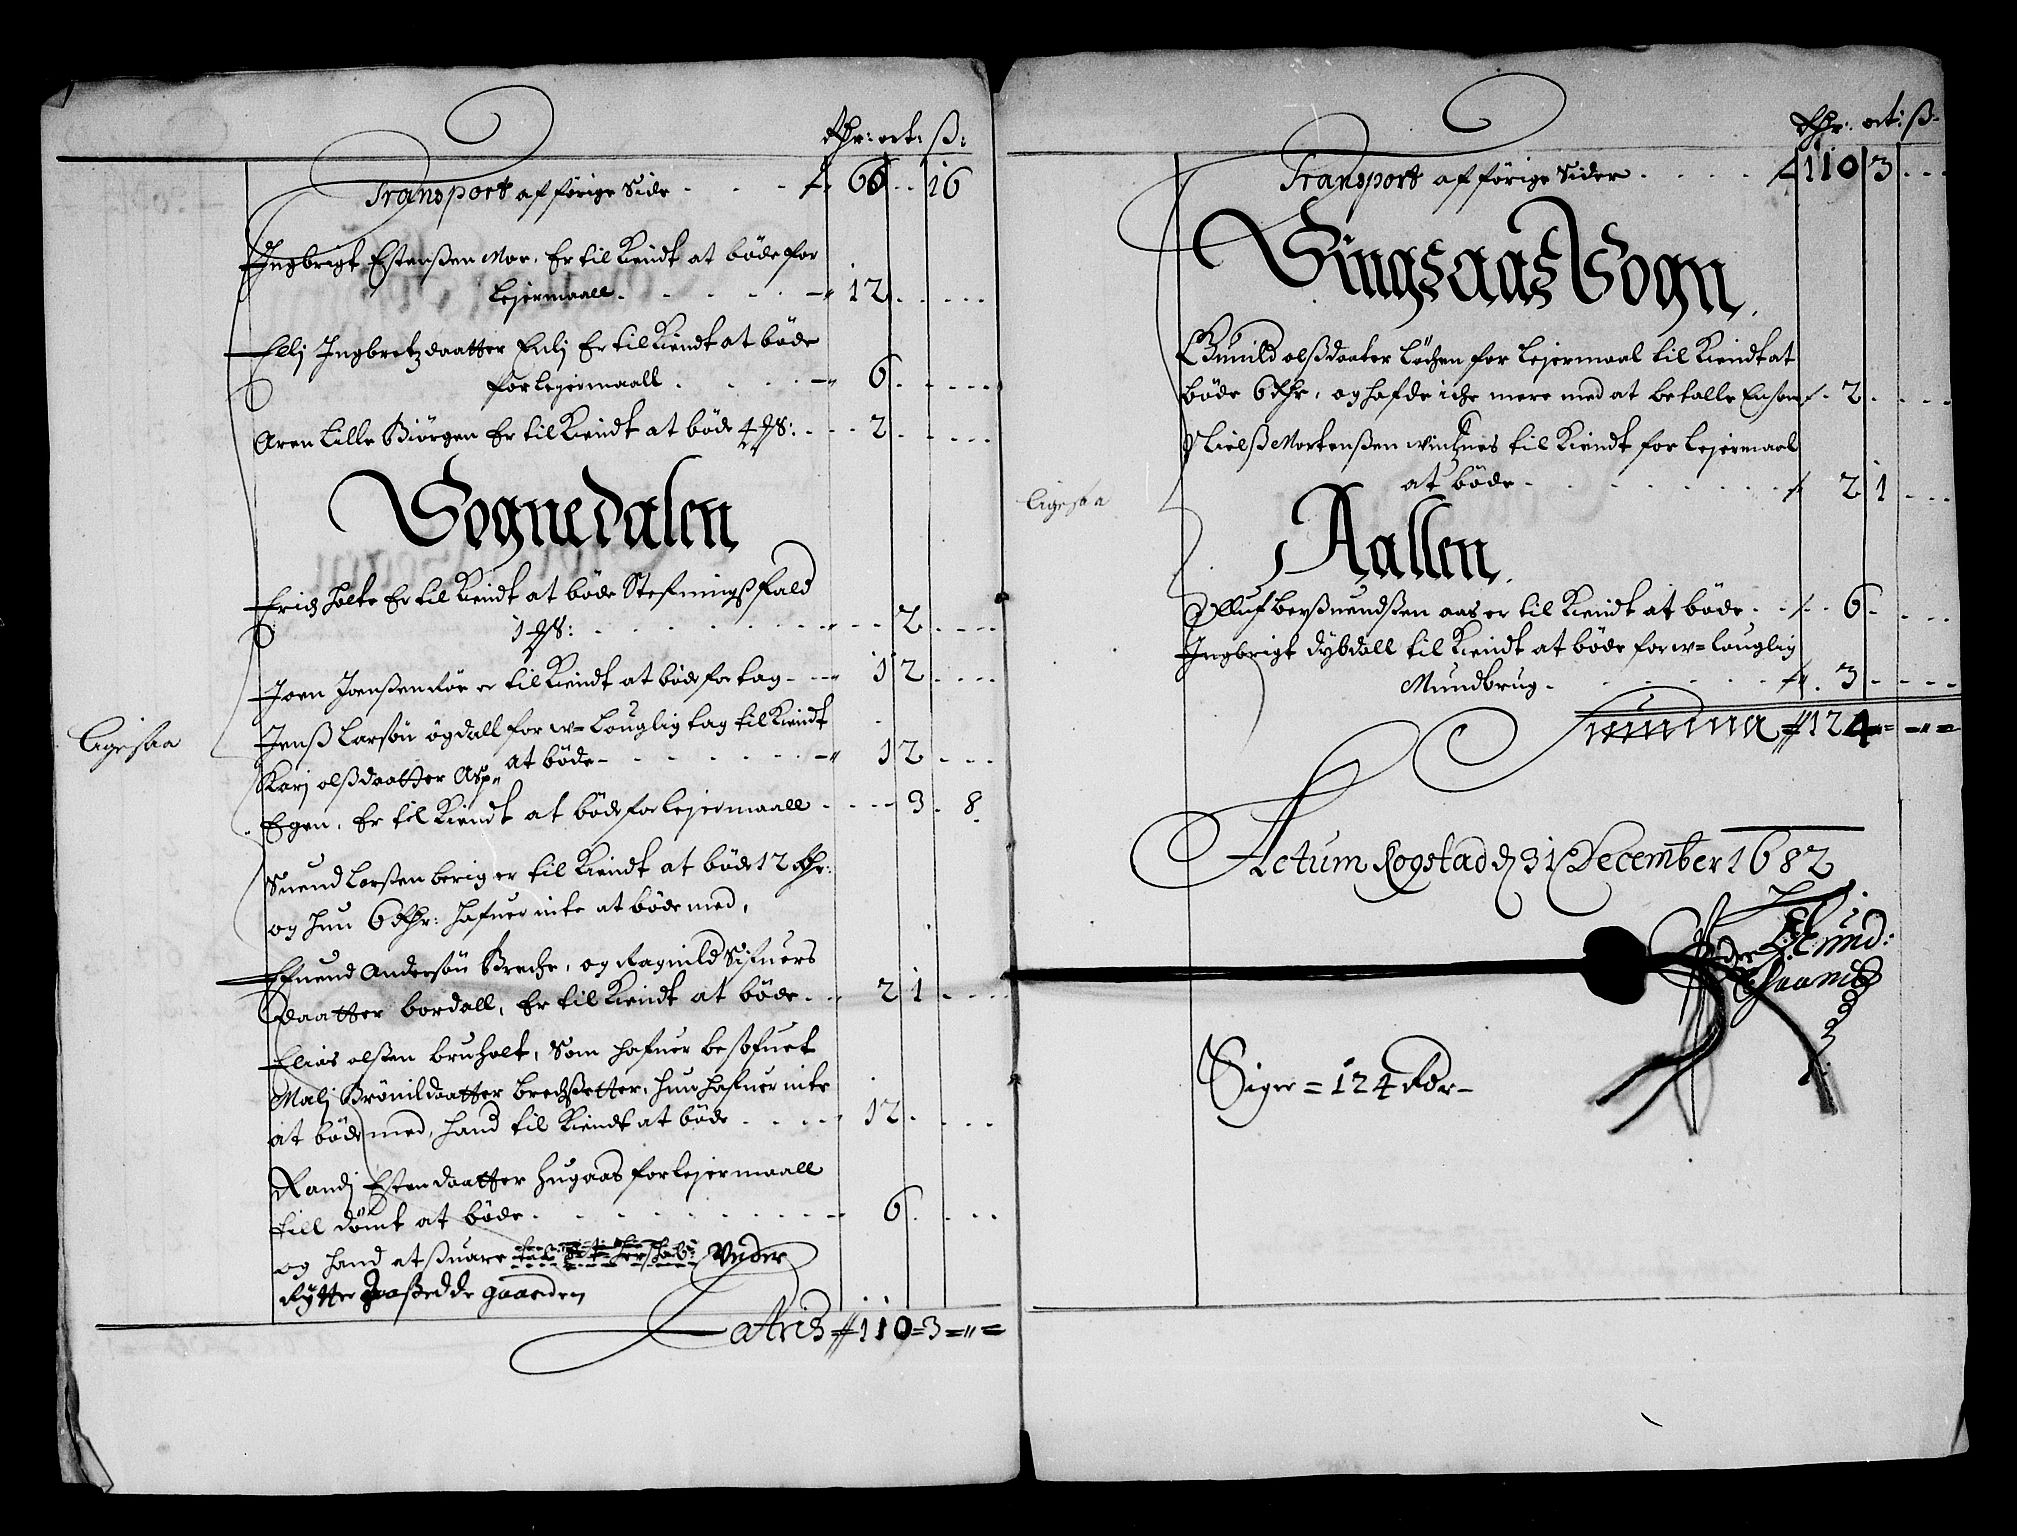 Rdr: ort: ß:
Transport af förige Side - - - 66 - - 16
Ingbrigt Estenßen Moe, Er til Kiendt at böde for
Lejermaall - - - 12 - - -
Elli Ingbretzdaatter Enli Er til Kiendt at böde
for Lejermaall - - - 6 - - -
Aren Lille Biörgen Er til Kiendt at böde 4 - - - 2 - - -
Sognedalen
Erich Holte Er til Kiendt at böde Stefningß Fald
1 - - - 2 - - -
Joen Joenßen Föe er til Kiendt at böde for tag - - - 1 2 - - -
Ligesaa
Jenß Larsön ögdall for w= Louglig tag til Kiendt
at böde - - - 1 2 - - -
Karj olßdaatter Asp=
Egen, Er til Kiendt at böde for Lejermaall - - - 3 - 8
Suend Larßen berig er til Kiendt at böde 12 Rdr:
og hun 6 Rdr: hafuer inte at böde med,
Efuend Andersön Breche, og Ragnild Sifuers
daatter bordall, Er til Kiendt at böde - - 2 1 - - -
Elias olßen bruholt, Som hafuer besofuet
Malj Brönildaatter brechSetter, hun hafuer inte
at böde med, hand til Kiendt at böde - - - 12 - - -
Randj Estendaatter Hugaas for Lejermaall
till dömt at böde - - - 6 - - -
og hand at suare Under
Rytter gaarden
Latris # 110 = 3 = " =
Rdr: ort: ß:
Transport af förige Sider - - - 110 3 - - -
Singsaas Sogn
Gunild olßdaater Löchen for Lejermaal til Kiendt at
böde 6 Rdr, og hafde iche mere med at betalle End som - 2 - - -
Nielß Mortenßen Winsnes til Kiendt for Lejermaal
Ligesaa
at böde - - - 2 1 - - -
Aallen
Olluf berSuendßen aas er til Kiendt at böde - - - 6 - - -
Ingbrigt dybdall til Kiendt at böde for w= Louglig
Mundbrug - - - 3 - - -
Summa # 124 = - = " =
Actum Rogstad d 31 December 1682
Siger = 124 Rdr -